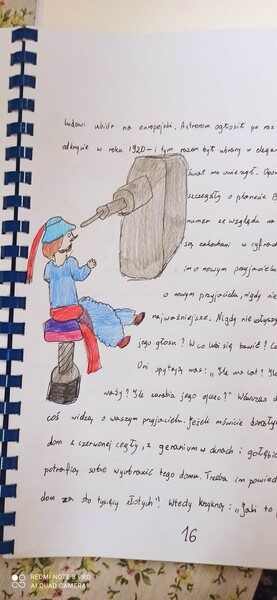 ludowi ubiór na europejski. Astronom ogłosił po raz
odkrycie w roku 1920-i tym razem był ubrany w elegan
świat mu uwierzył. Opow
szczegóły o planecie B
numer ze względu na
są zakochani w cyfrach
im o nowym przyjacielu
o nowym przyjacielu, nigdy nie
najważniejsze. Nigdy nie usłyszy
jego głosu? W co lubi bawić? Cz
Oni spytają was: "Ile ma lat? Ilu
waży? Ile zarabia jego ojciec?" Wówczas d
coś wiedzą o waszym przyjacielu. Jeżeli mówicie dorosły
dom z czerwonej cegły, z geranium w oknach i gołębi
potrafią sobie wyobrazić tego domu. Trzeba im powiedz
dom za sto tysięcy złotych". Wtedy krzykną: "Jaki to
16
REDMI NOTE 8 PRO
AI QUAD CAMERA